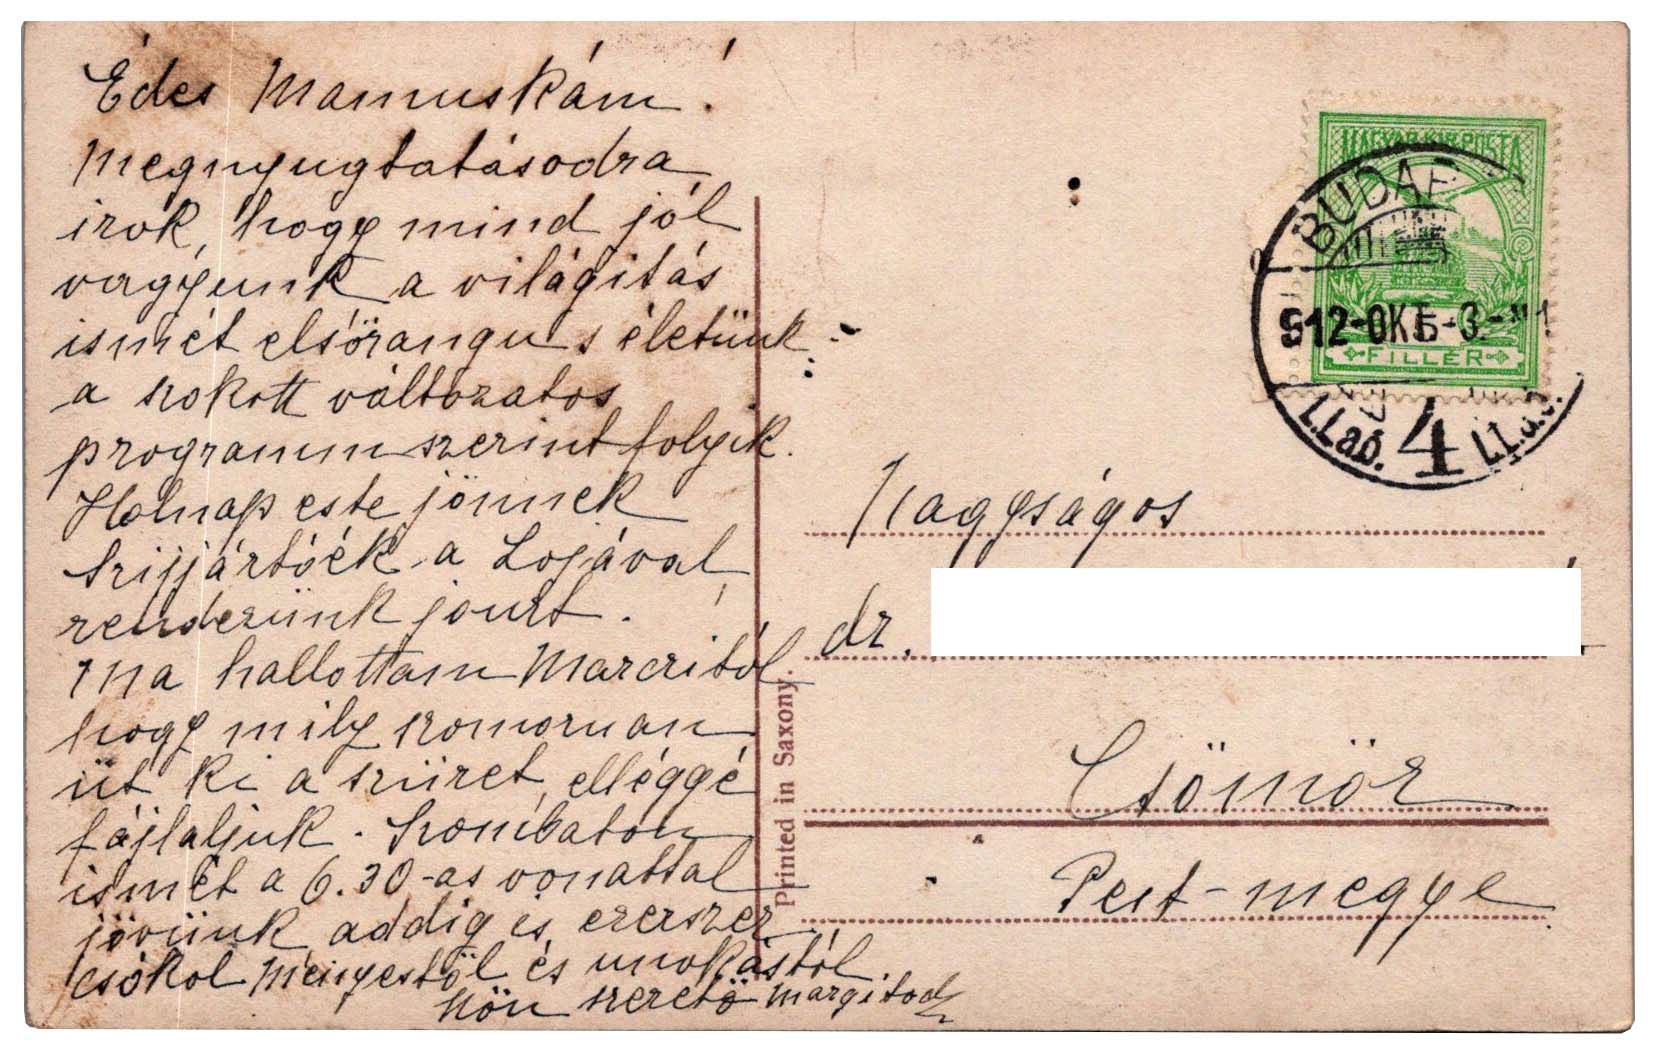 Édes Mamuskám!
Megnyugtatásodra
irok, hogy mind jól
vagyunk a világitás
ismét elsőrangu s életünk
a szokott változatos
programm szerint folyik.
Holnap este jönnek
Szijjártóék a Lojával,
rendezünk jourt.
Ma hallottam Marcsitól
hogy mily szomoruan
üt ki a szüret, elléggé
fájlaljuk. Szombaton
ismét a 6.30-as vonattal
jövünk addig is ezerszer
csókol menyestől és unokástól
hőn szerető Margitod
MAGYAR KIR. POSTA
FILLÉR
BUDAP
912-OKT-3.
4
Nagyságos
dr.
Csömör
Pest-megye
Printed in Saxony.